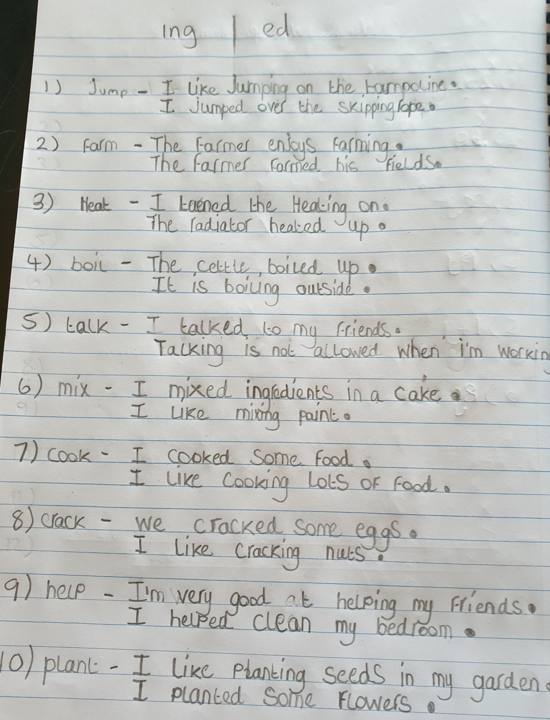 ing | ed
1) Jump - I like Jumping on the trampoline.
I Jumped over the skipping rope.
2) Farm - The Farmer enjoys Farming.
The Farmer Farmed his Fields.
3) Heat - I turned the Heating on.
The radiator heated up.
4) boil - The cettle boiled up.
It is boiling outside.
5) talk - I talked to my friends.
Talking is not allowed when i'm working
6) mix - I mixed ingredients in a cake.
I like mixing paint.
7) cook - I cooked some food.
I like cooking lots of food.
8) crack - we cracked some eggs.
I like cracking nuts.
9) help - I'm very good at helping my friends.
I helped clean my bedroom.
10) plant - I like planting seeds in my garden.
I planted some flowers.